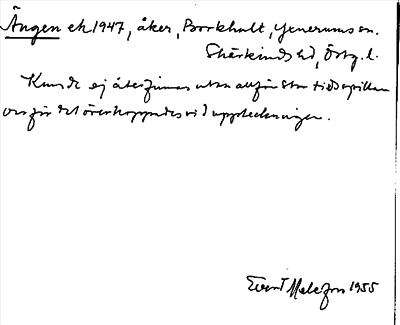 Ängen ek 1947, åker, Borkhult, Yxnerums sn.
Skärkinds hd, Östg. l.
Kunde ej återfinnas utan allför stor tidsspillan
varför det överhoppades vid uppteckningen.
Evert Melefors 1955